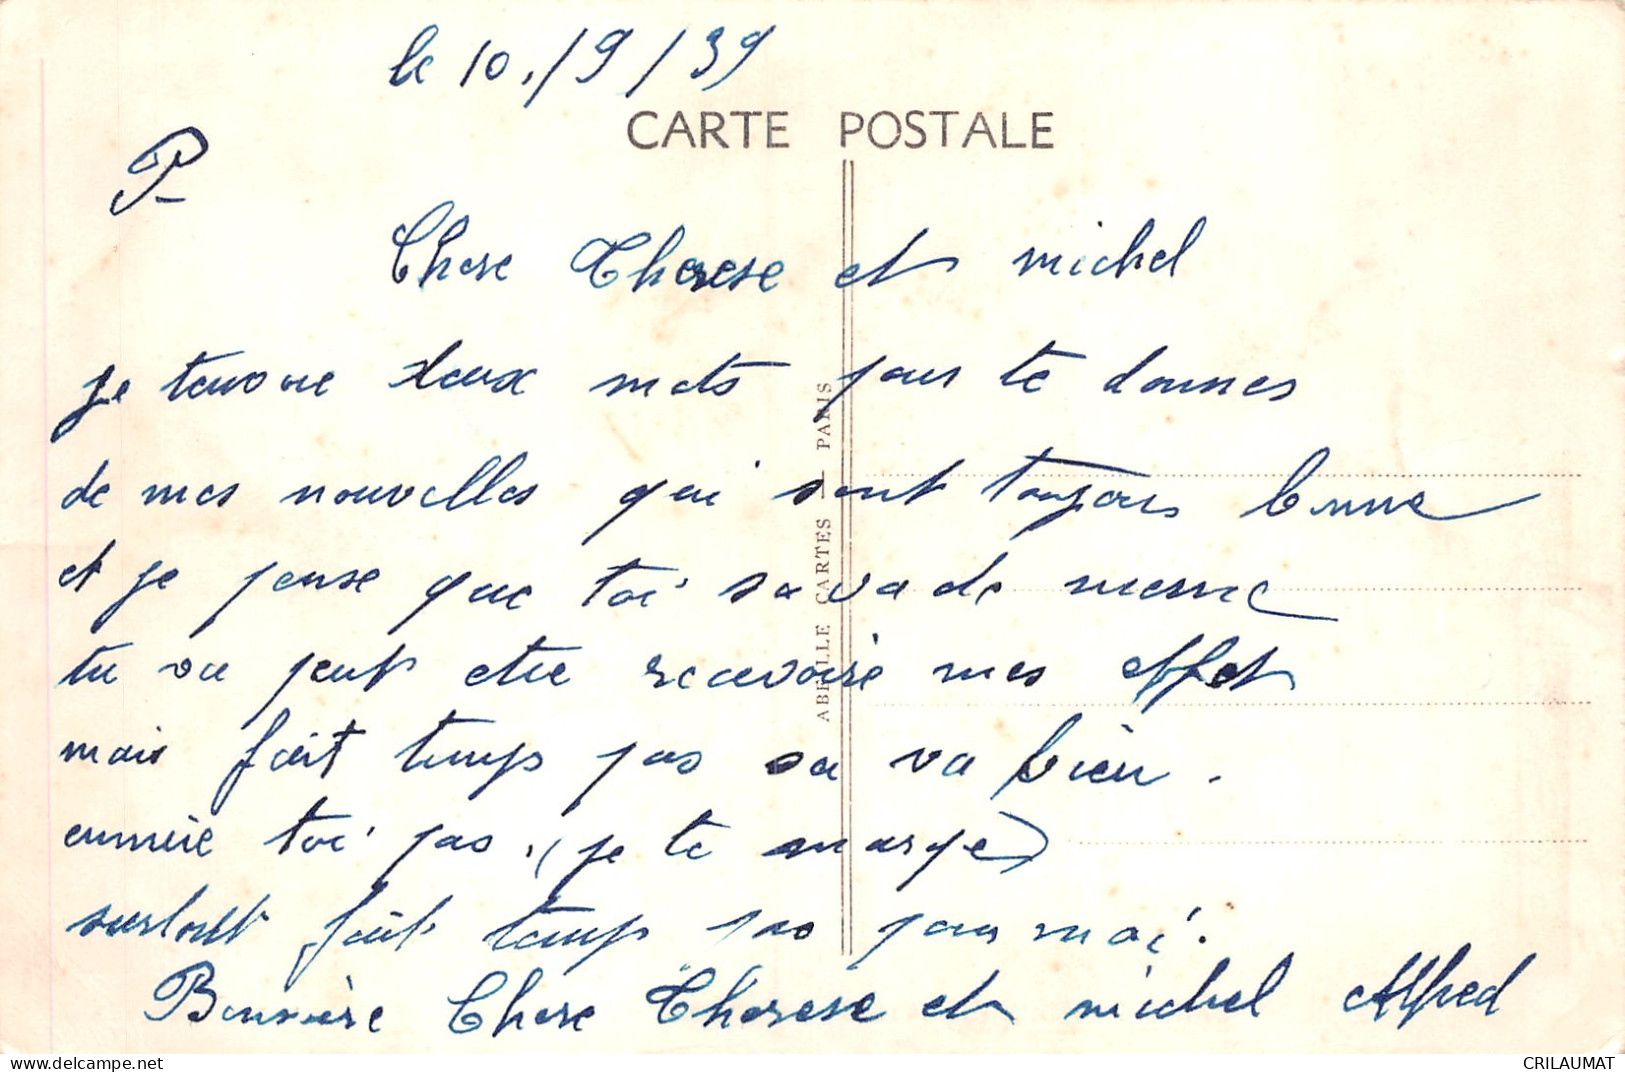 le 10./9/39
CARTE POSTALE
P
Chere Therese et michel
je tenvoie deux mots pour te donnes
de mes nouvelles qui sont toujours bonne
et je pense que toi sa va de meme
tu va peut etre recevoire mes effet
mais fait temps pas sa va bien.
ennuie toi pas. (je te marge)
surtout fait temps pas pour moi.
Bonsoire Chere Therese et michel Alfred
ABEILLE CARTES — PARIS
delcampe.net
CRILAUMAT